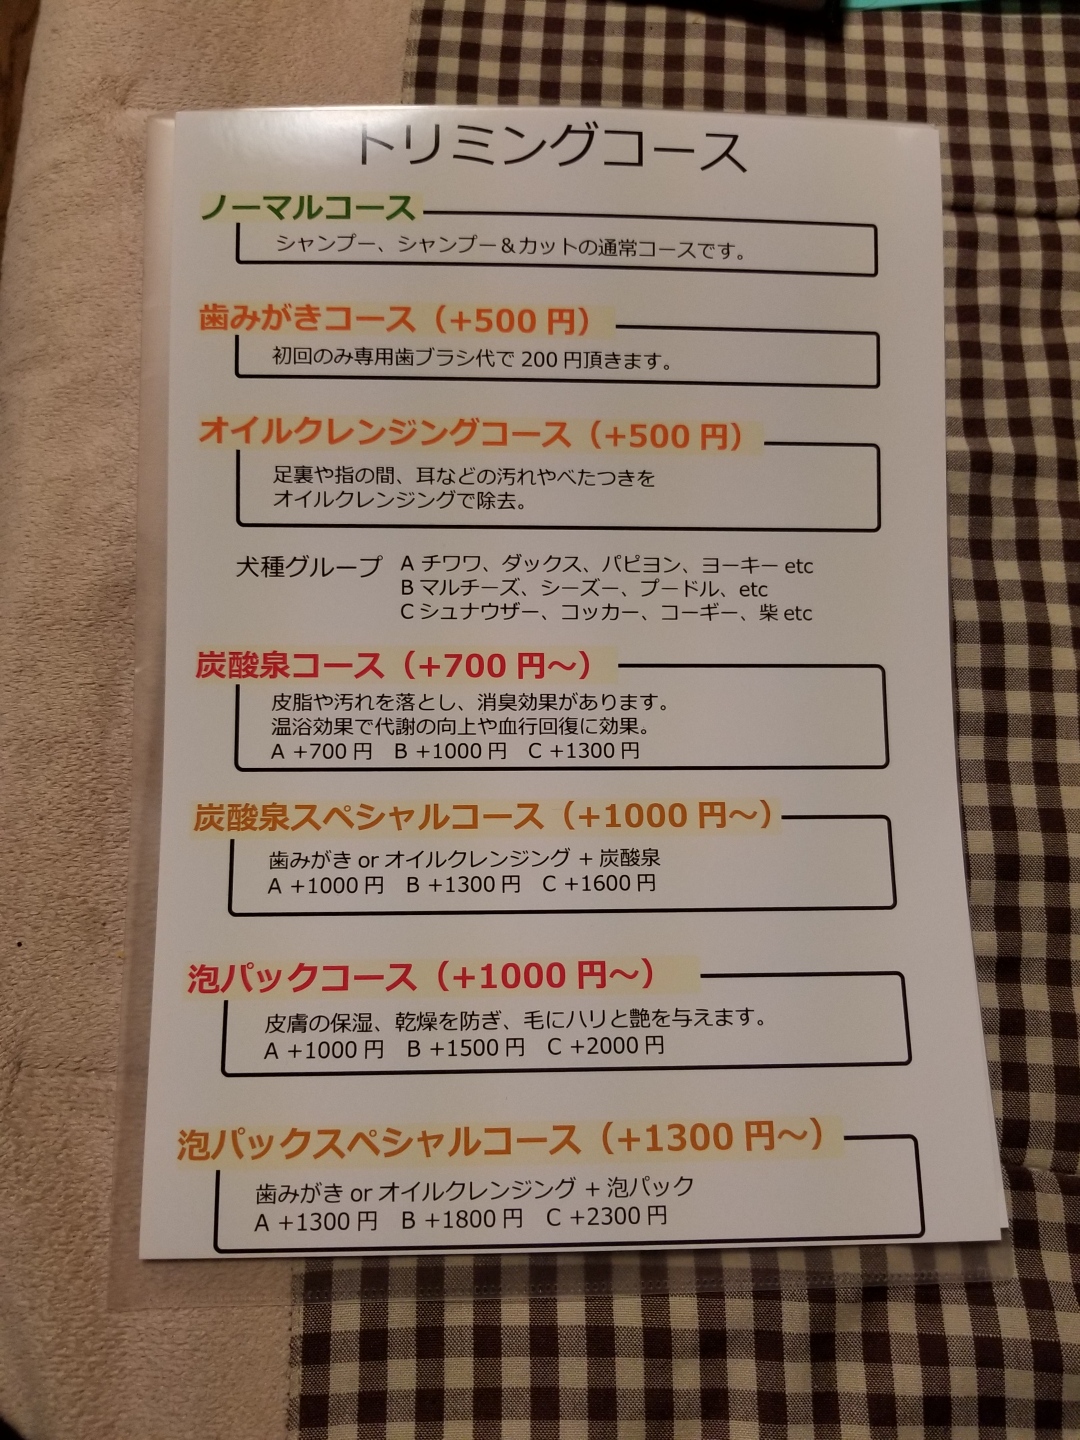 トリミングコース
ノーマルコース
シャンプー、シャンプー＆カットの通常コースです。
歯みがきコース（+500 円）
初回のみ専用歯ブラシ代で 200 円頂きます。
オイルクレンジングコース（+500 円）
足裏や指の間、耳などの汚れやべたつきを
オイルクレンジングで除去。
犬種グループ A チワワ、ダックス、パピヨン、ヨーキー etc
B マルチーズ、シーズー、プードル、etc
C シュナウザー、コッカー、コーギー、柴 etc
炭酸泉コース（+700 円～）
皮脂や汚れを落とし、消臭効果があります。
温浴効果で代謝の向上や血行回復に効果。
A +700 円 B +1000 円 C +1300 円
炭酸泉スペシャルコース（+1000 円～）
歯みがき or オイルクレンジング + 炭酸泉
A +1000 円 B +1300 円 C +1600 円
泡パックコース（+1000 円～）
皮膚の保湿、乾燥を防ぎ、毛にハリと艶を与えます。
A +1000 円 B +1500 円 C +2000 円
泡パックスペシャルコース（+1300 円～）
歯みがき or オイルクレンジング + 泡パック
A +1300 円 B +1800 円 C +2300 円